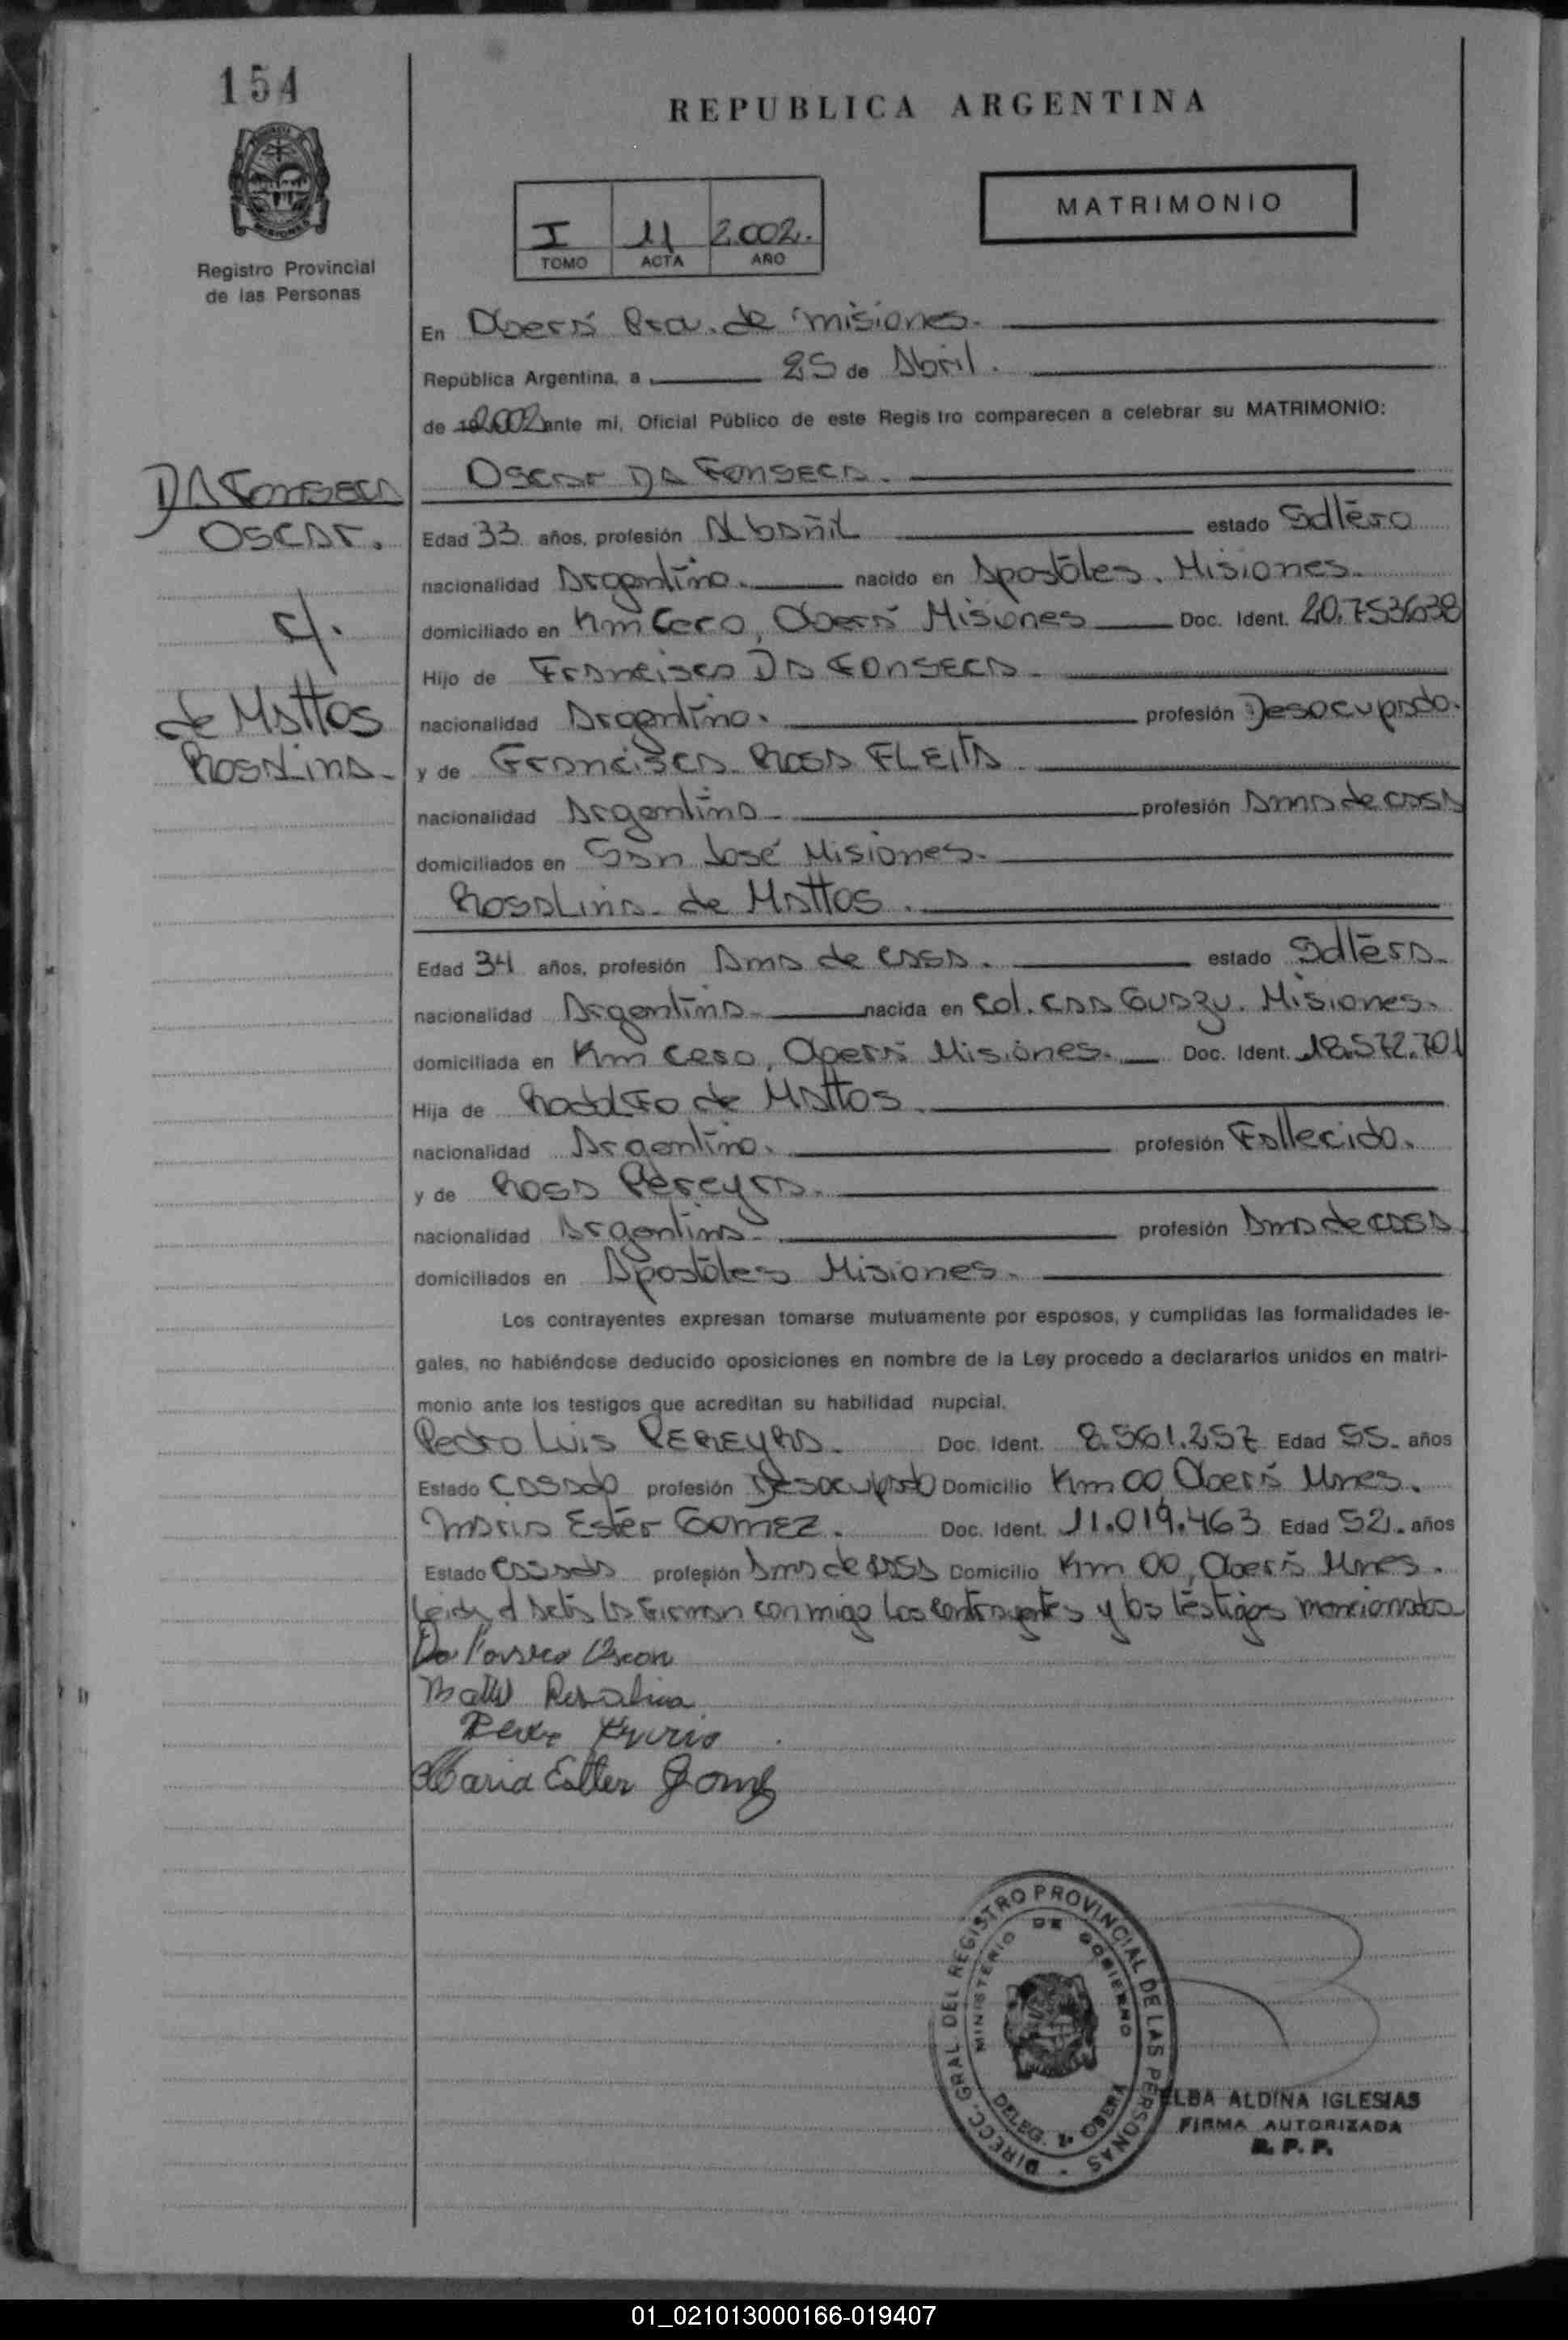 154
REPUBLICA ARGENTINA
PROVINCIA DE MISIONES
Registro Provincial
de las Personas
MATRIMONIO
I 11 2.002.
TOMO ACTA AÑO
En Oberá Pcia. de misiones.
República Argentina, a 25 de Abril.
de 2002 ante mi, Oficial Público de este Registro comparecen a celebrar su MATRIMONIO:
Oscar DA FONSECA.
DA FONSECA
OSCAR.
c/.
de Mattos
Rosalina.
Edad 33 años, profesión Albañil estado Soltero
nacionalidad Argentino. nacido en Apostóles. Misiones.
domiciliado en Km Cero, Oberá Misiones Doc. Ident. 20.753.638
Hijo de Francisco DA FONSECA.
nacionalidad Argentino. profesión Desocupado.
y de Francisca Rosa FLEITA
nacionalidad Argentina profesión Ama de casa
domiciliados en San José Misiones.
Rosalina de Mattos.
Edad 34 años, profesión Ama de casa. estado Soltera.
nacionalidad Argentina nacida en Col. Caa Guazu. Misiones.
domiciliada en Km cero, Oberá Misiones. Doc. Ident. 18.572.701
Hija de Rodolfo de Mattos
nacionalidad Argentino. profesión Fallecido.
y de Rosa Pereyra.
nacionalidad Argentina profesión Ama de casa
domiciliados en Apostóles Misiones.
Los contrayentes expresan tomarse mutuamente por esposos, y cumplidas las formalidades le-
gales, no habiéndose deducido oposiciones en nombre de la Ley procedo a declararlos unidos en matri-
monio ante los testigos que acreditan su habilidad nupcial.
Pedro Luis PEREYRA. Doc. Ident. 8.561.257 Edad 55. años
Estado Casado profesión Desocupado Domicilio Km 00 Oberá Mnes.
Maria Ester GOMEZ. Doc. Ident. 11.019.463 Edad 52. años
Estado casada profesión Ama de casa Domicilio Km 00, Oberá Mnes.
Leida el acta la firman conmigo los contrayentes y los testigos mencionados
Da Fonseca Oscar
Rosalina
Maria Ester Gomez
DIRECC. GRAL. DEL REGISTRO PROVINCIAL DE LAS PERSONAS
MINISTERIO DE GOBIERNO
DELEG. OBERA
ELBA ALDINA IGLESIAS
FIRMA AUTORIZADA
R. P. P.
01_021013000166-019407